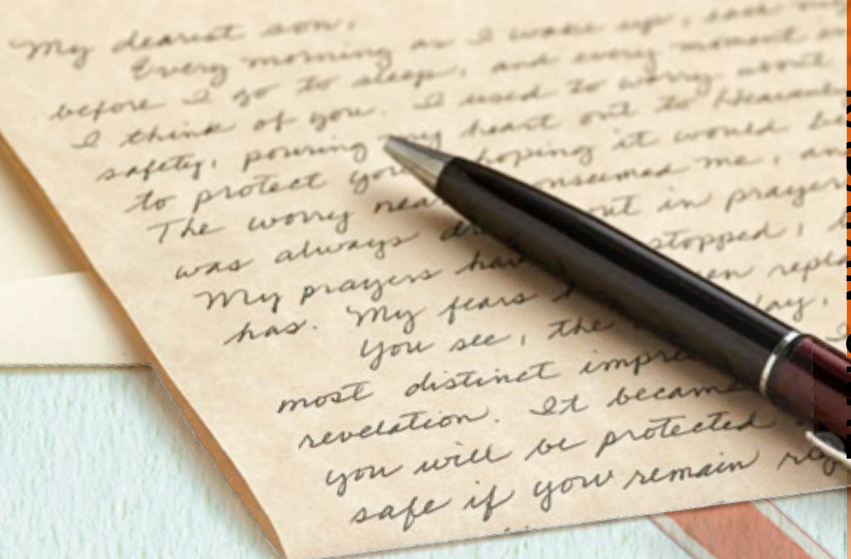 My dearest son,
Every morning as I wake up, each
before I go to sleep, and every moment
I think of you. I used to worry about
safety, pouring my heart out to Heavenly
to protect you, hoping it would be
The worry nearly consumed me, and
was always out in prayer
My prayers stopped,
has. My fears
You see, the day,
most distinct
revelation. It became
you will be protected
safe if your remain